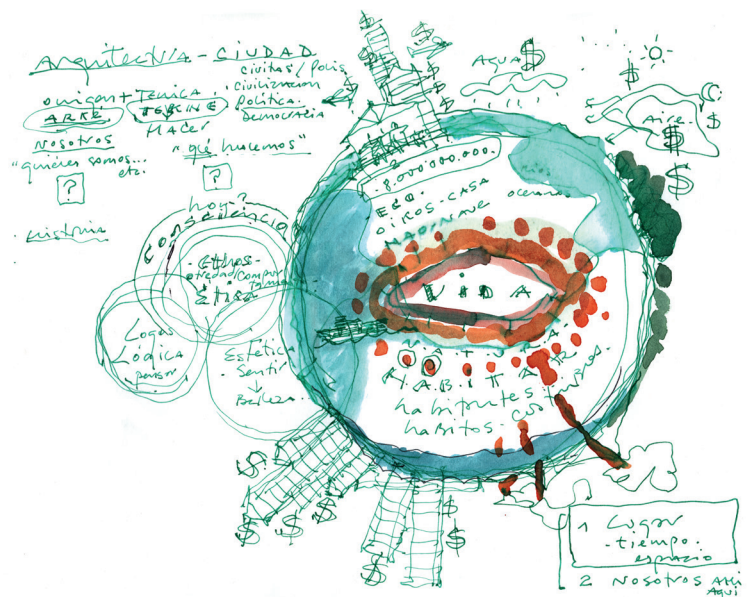 Arquitectura - CIUDAD
civitas/Polis
civilización
Política.
Democracia
origen + Técnica.
ARKE TEKCNE
Hacer
NOSOTROS
"quiénes somos...
etc.
"qué hacemos"
?
?
historia
hoy?
consciencia
Ethos
Ética
Logos
Lógica
pensar
Estética
Sentir
Belleza
AGUA $
$
Aire.
$
$
$
8.000.000.000.
ECO.
OIKOS-CASA
oceanos
VIDA
HABITAR
habitantes
habitos-costumbres
$
$
$
$
$
$
$
1 Lugar
-tiempo.
espacio
2 NOSOTROS Ahi
Aqui